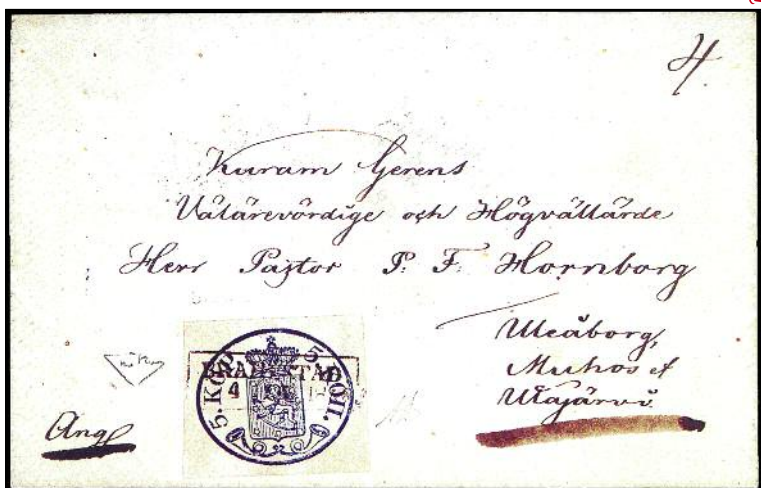 4.
Kuram Gerens
Välärevördige och Högvällärde
Herr Pastor P. F. Hornborg
Uleåborg,
Muhos et
Utajärvi
5. KOP. 5 КОП.
BRAHESTAD
4
Ang